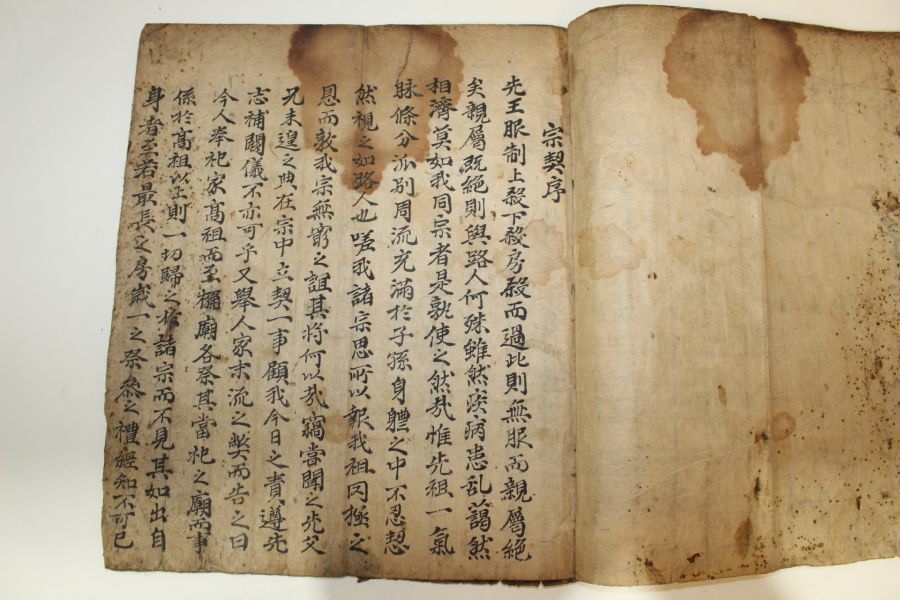 宗契序
先王服制上殺下殺房殺而過此則無服而親屬絶
矣親屬既絶則與路人何殊雖然疾病患乱藹然
相濟莫如我同宗者是孰使之然㢤惟先祖一氣
脉條分派別周流充滿於子孫身軆之中不忍恝
然視之如路人也嗟我諸宗思所以報我祖罔極之
恩而敦我宗無窮之誼其將何以㢤竊嘗聞之先父
兄未遑之典在宗中立契一事顧我今日之責遵先
志補闕儀不亦可乎又舉人家末流之弊而告之曰
今人奉祀家高祖而至禰廟各祭其當祀之廟而事
係於高祖以上則一切歸之於諸宗而不見其如出自
身者至若最長之房歲一之祭叅之禮經知不可已